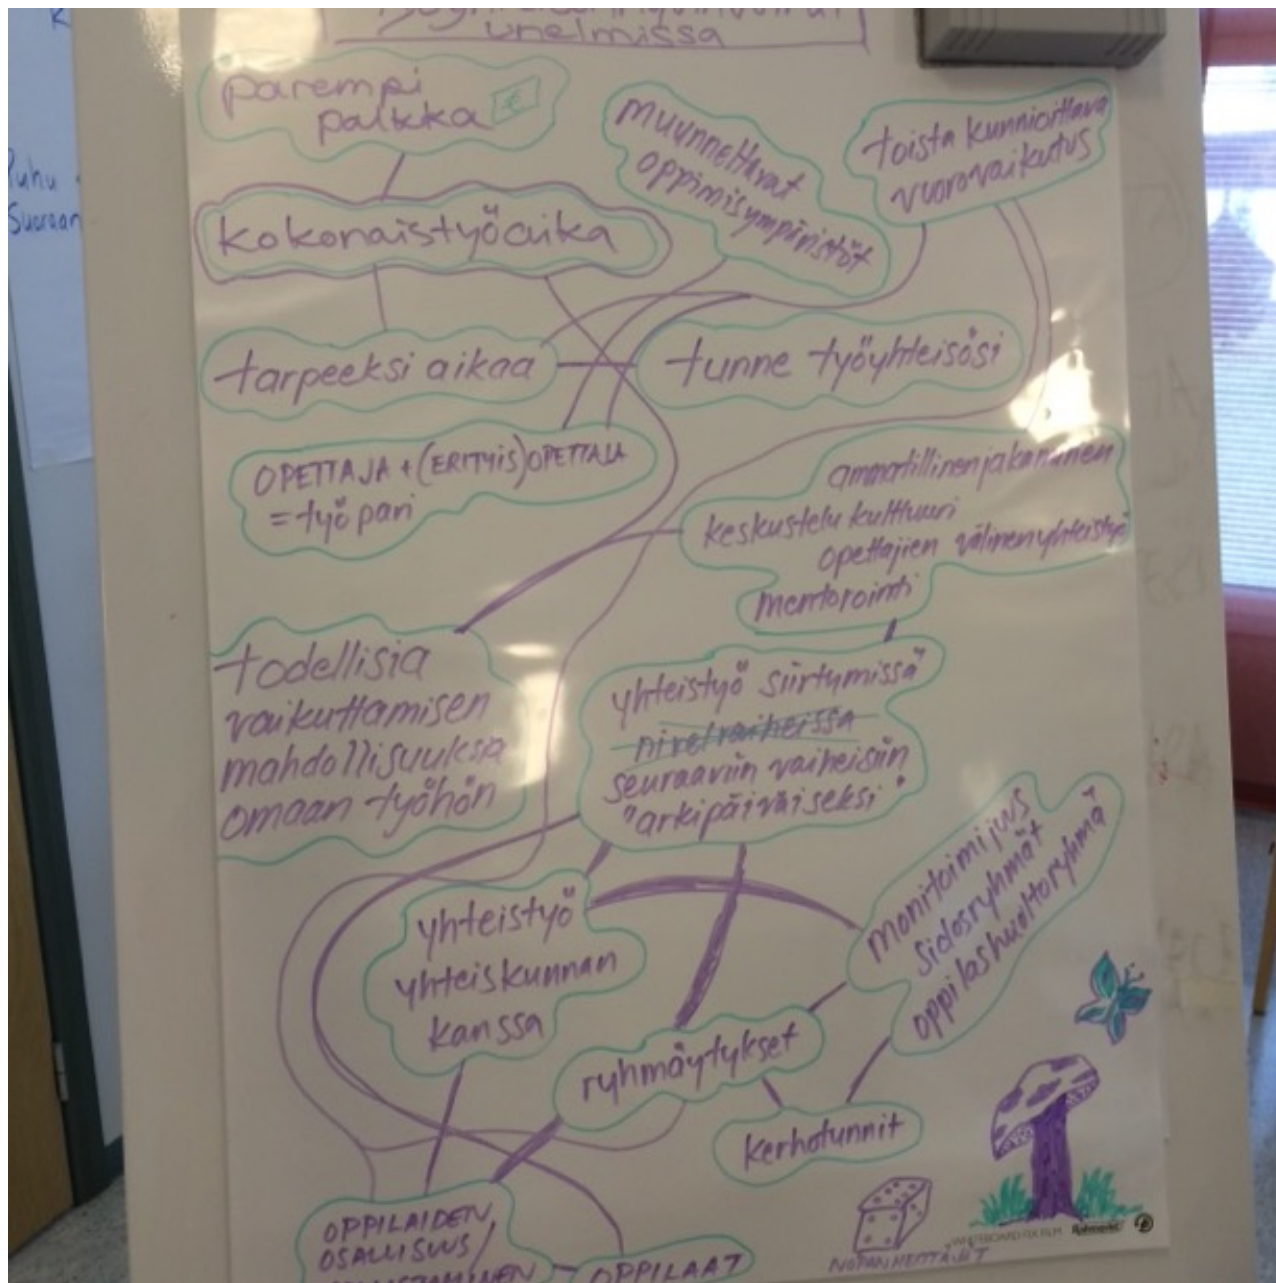 unelmissa
parempi
palkka €
muunnettavat
oppimisympäristöt
toista kunnioittava
vuorovaikutus
kokonaistyöaika
tarpeeksi aikaa
tunne työyhteisösi
OPETTAJA + (ERITYIS)OPETTAJA
= työpari
ammatillinen jakaminen
keskustelu kulttuuri
opettajien välinen yhteistyö
mentorointi
todellisia
vaikuttamisen
mahdollisuuksia
omaan työhön
yhteistyö siirtymissä
nivelvaiheissa
seuraaviin vaiheisiin
"arkipäiväiseksi"
yhteistyö
yhteiskunnan
kanssa
monitoimijuus
sidosryhmät
oppilashuoltoryhmä
ryhmäytykset
kerhotunnit
OPPILAIDEN
OSALLISUUS /
OPPILAAT
NOPANHEITTÄJÄT
WHITEBOARD FIX FILM
Puhu
Suoraan